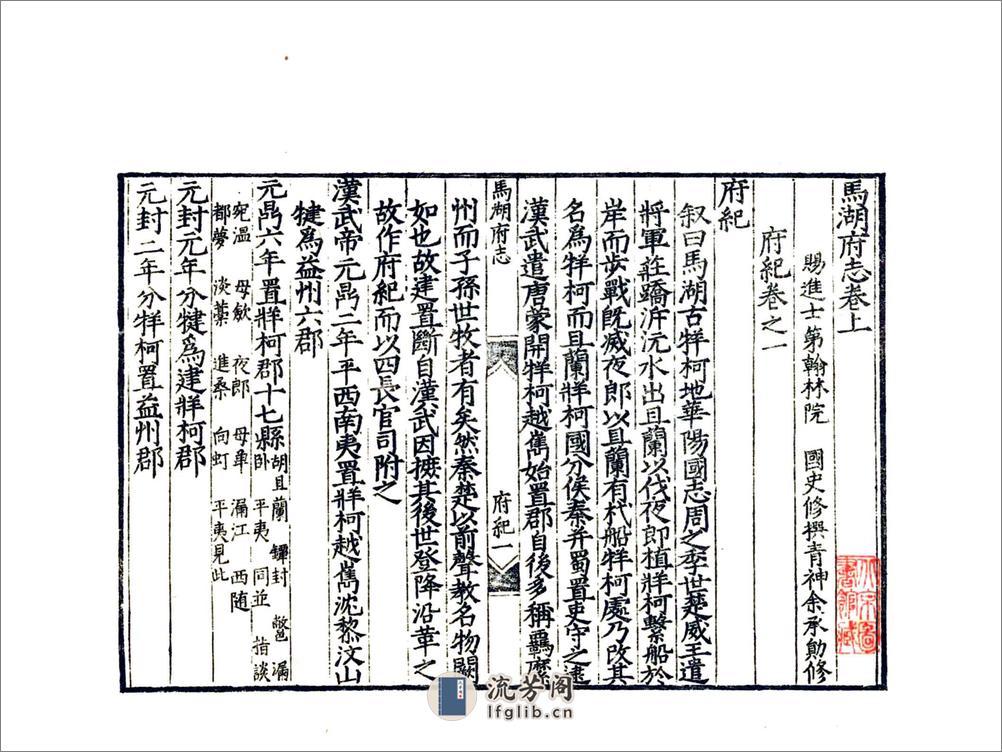 馬湖府志卷上
賜進士第翰林院 國史修撰青神余承勛修
府紀卷之一
府紀
叙曰馬湖古牂柯地華陽國志周之季世楚威王遣
將軍莊蹻泝沅水出且蘭以伐夜郎植牂柯繫船於
岸而步戰旣滅夜郎以且蘭有杙船牂柯處乃改其
名為牂柯而且蘭牂柯國分侯秦并蜀置吏守之逮
漢武遣唐蒙開牂柯越嶲始置郡自後多稱羈縻
馬湖府志
府紀一
州而子孫世牧者有矣然秦楚以前聲教名物闕
如也故建置斷自漢武因摭其後世登降沿革之
故作府紀而以四長官司附之
漢武帝元鼎二年平西南夷置牂柯越嶲沈黎汶山
犍為益州六郡
元鼎六年置牂柯郡十七縣
胡且蘭 鐔封 漏
卧 平夷 同並 談
宛溫 毋斂 夜郎 毋單 漏江 西随
都夢 淡藁 進桑 向虹 平夷見此
元封元年分犍爲建牂柯郡
元封二年分牂柯置益州郡
流芳阁
lfglib.cn